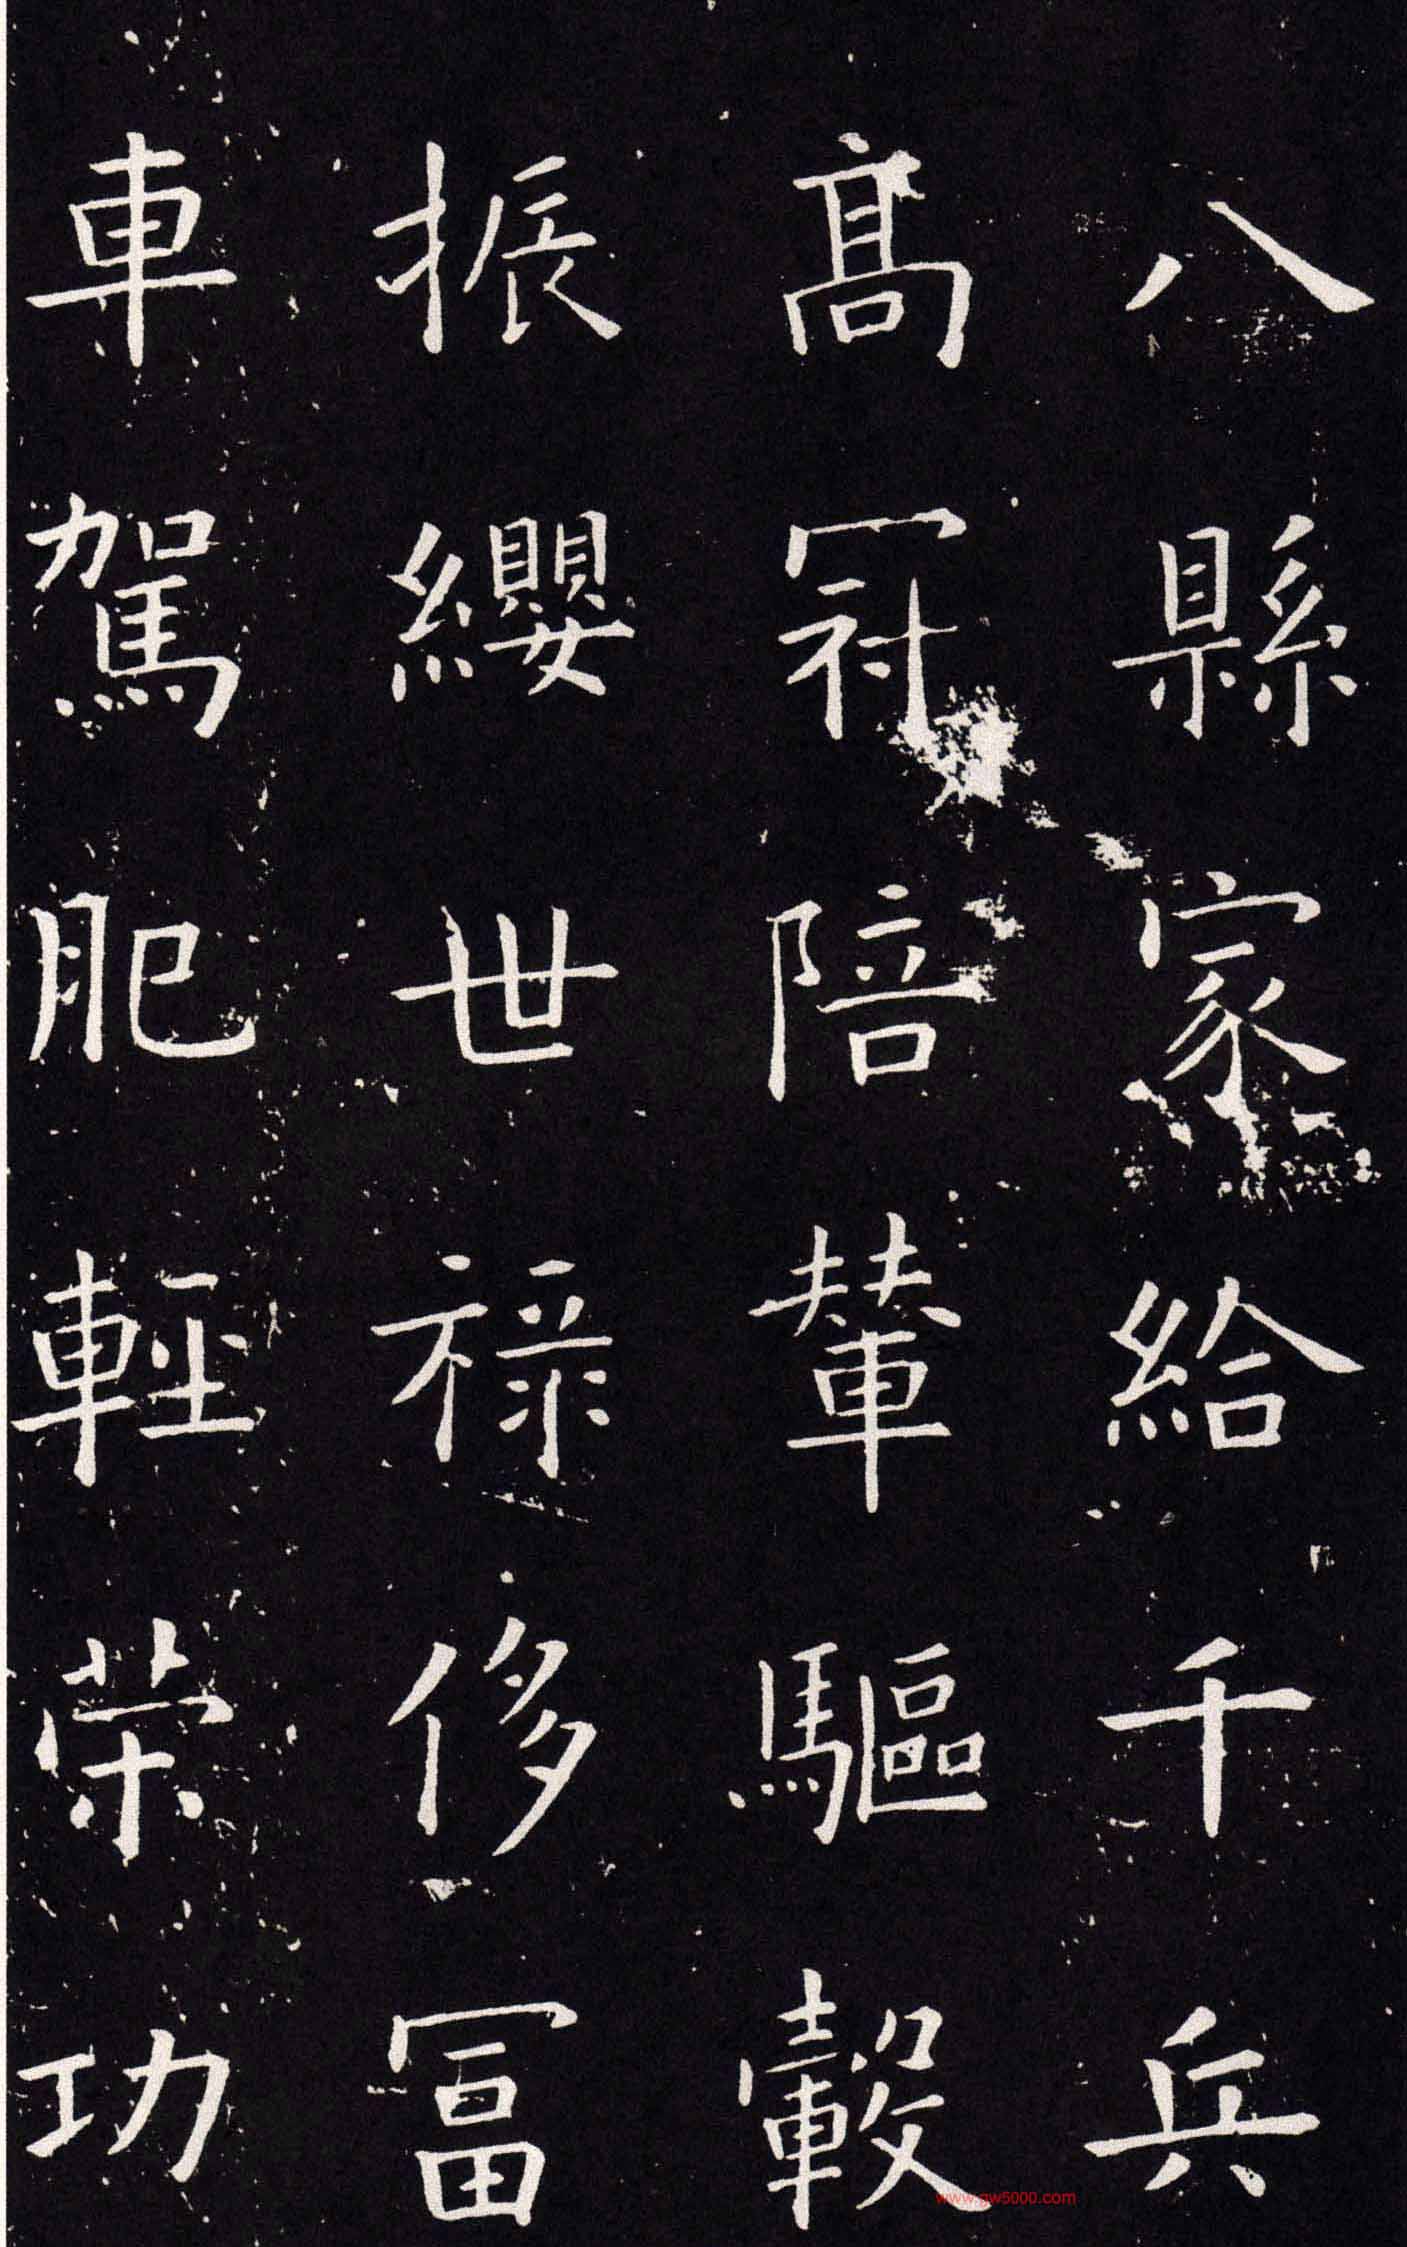 八縣家給千兵
髙冠陪輦驅轂
振纓世祿侈冨
車駕肥輕荣功
www.gw5000.com